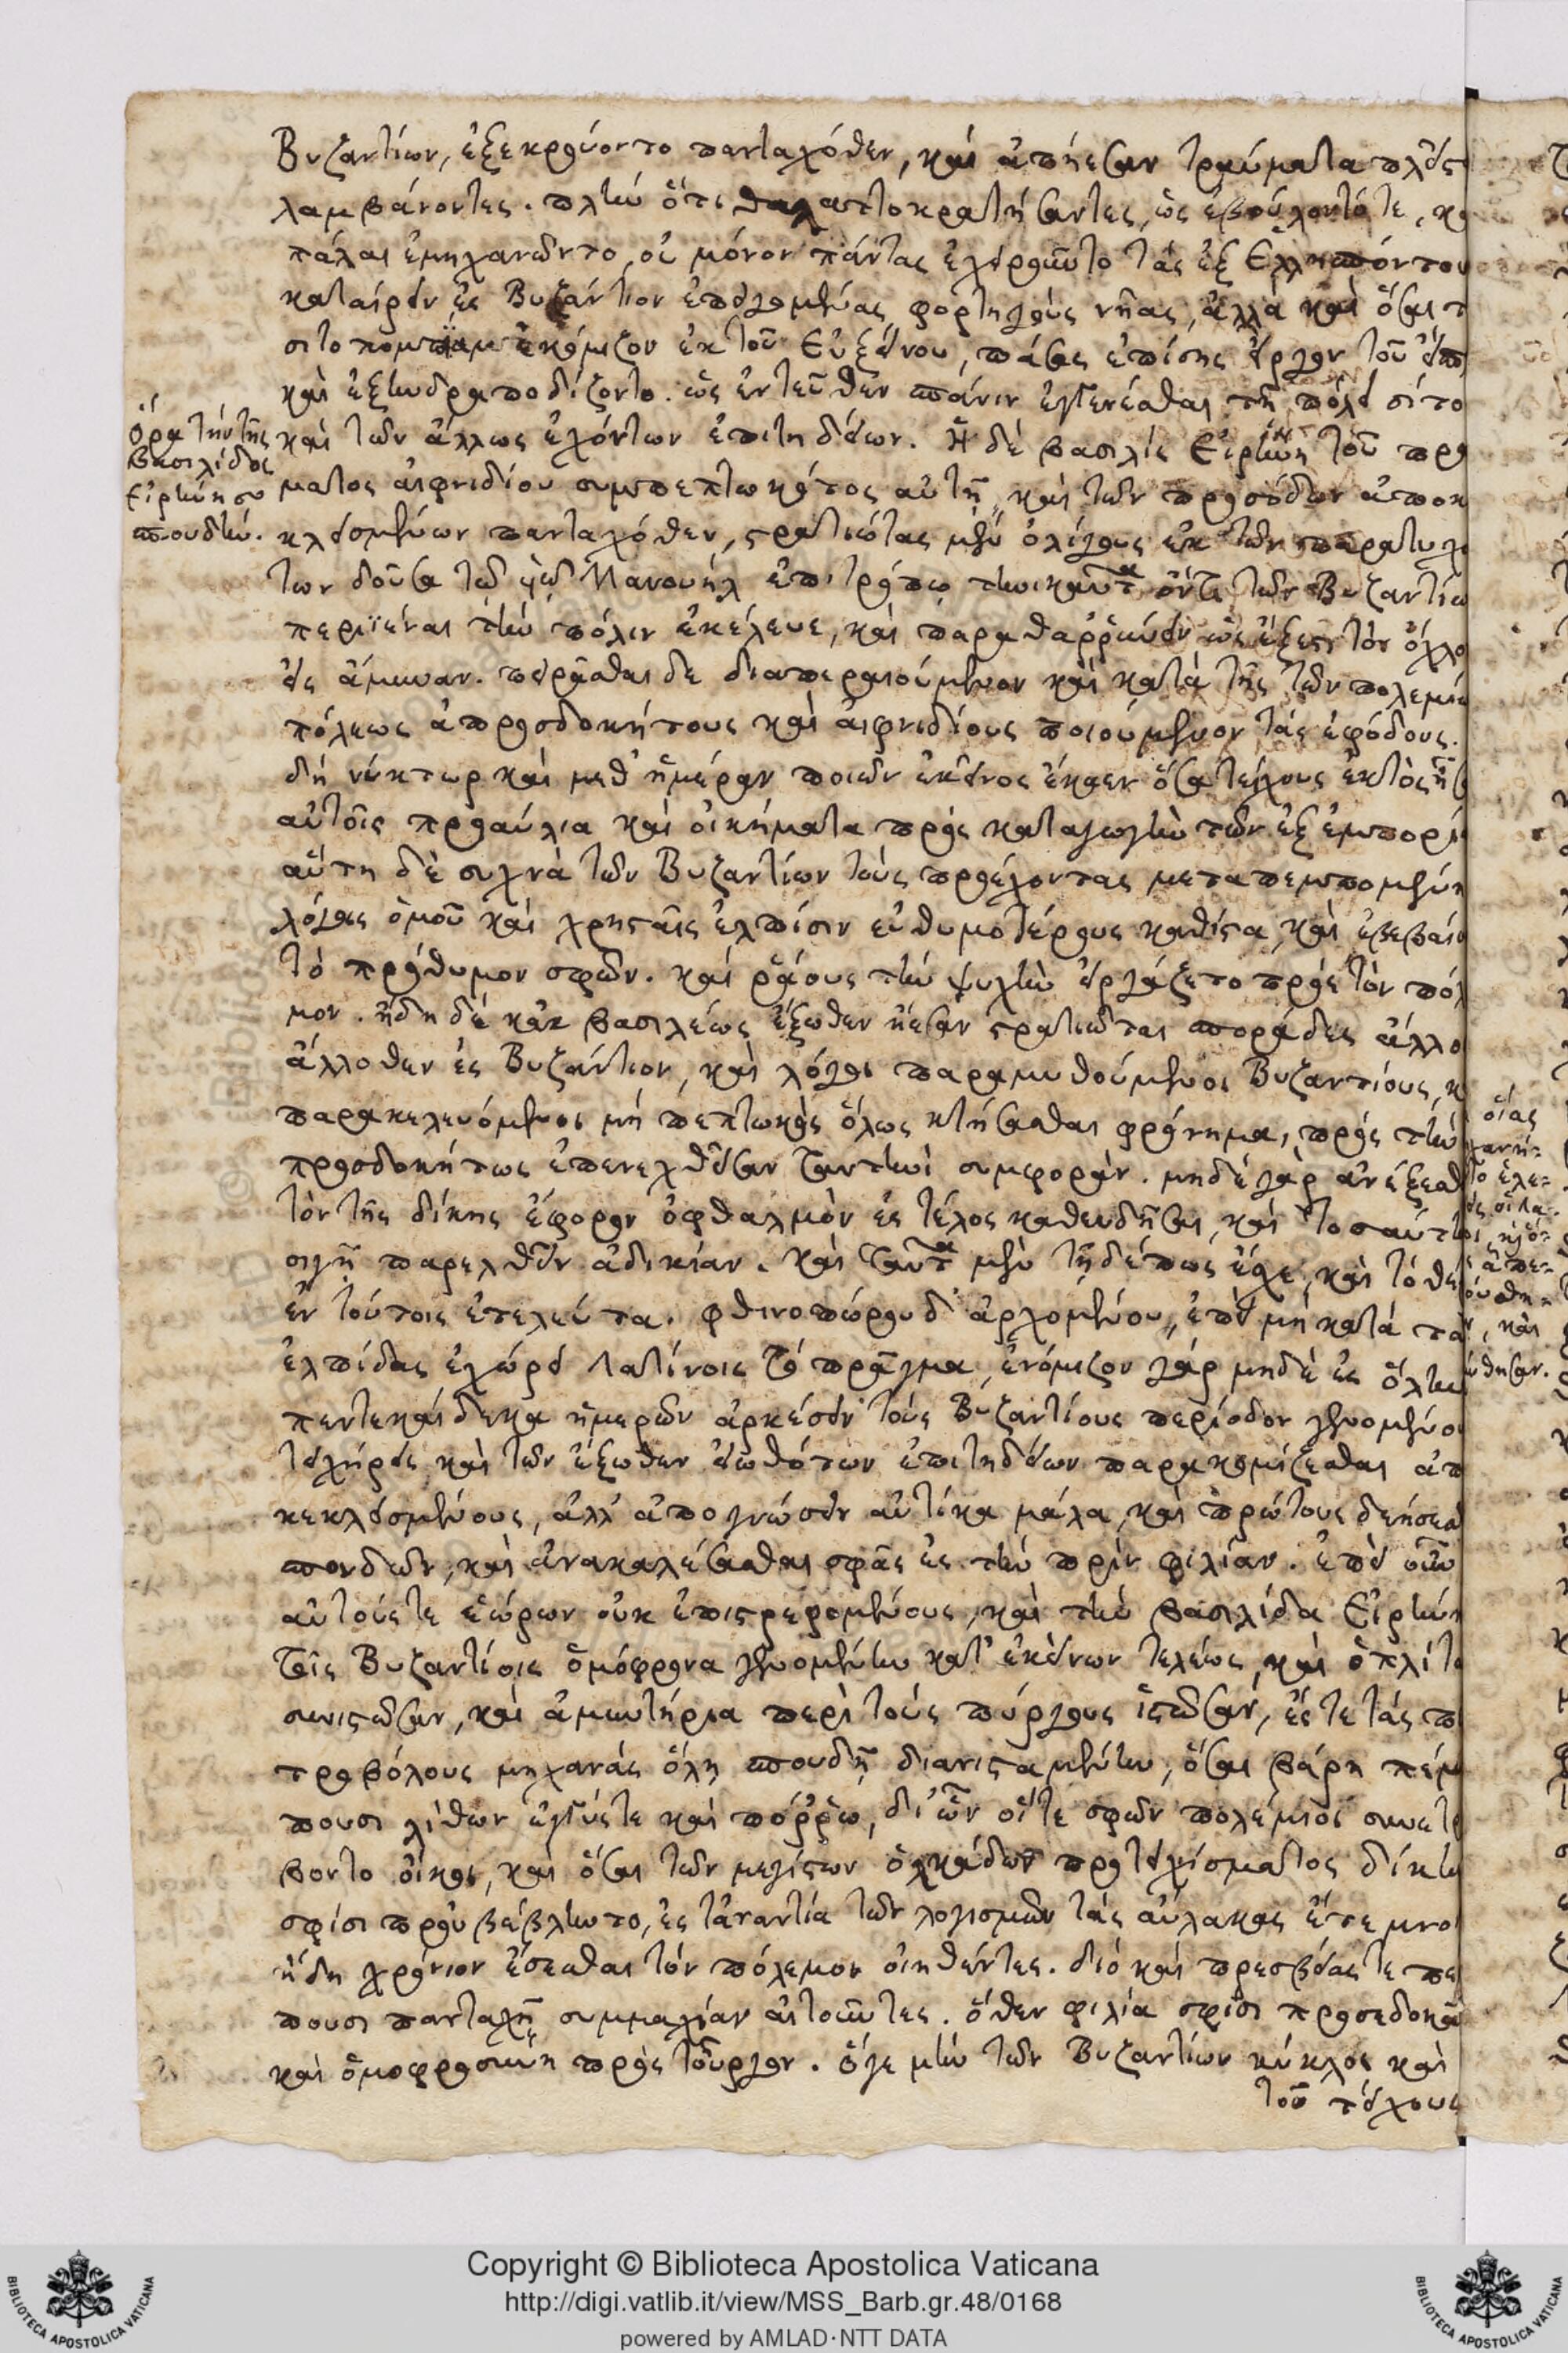 Βυζαντίων, ἐξεκρούοντο πανταχόθεν, καὶ ἀπῄεσαν τραύματα πλεῖστ
λαμβάνοντες. πλὴν ὅτι θαλαττοκρατήσαντες, ὡς ἐβούλοντό τε, κα
πάλαι ἐμηχανῶντο, οὐ μόνον πάντας ἐχειροῦντο τὰς ἐξ Ἑλλησπόντου
καταίρειν ἐς Βυζάντιον ἐπειγομένας φορτηγοὺς νῆας, ἀλλὰ καὶ ὅσαι τ
σιτοπομπίαν ἐκόμιζον ἐκ τοῦ Εὐξείνου, πάσας ἐπίσης εἶργον τοῦ εἴσπ
καὶ ἐξηνδραποδίζοντο. ὡς ἐντεῦθεν σπάνιν ἐγγενέσθαι τῇ πόλει σίτο
καὶ τῶν ἄλλως ἐχόντων ἐπιτηδείων. Ἡ δὲ βασιλὶς Εἰρήνη τοῦ πρα
ματος αἰφνιδίου συμπεπτωκότος αὐτῇ, καὶ τῶν προσόδων ἀποκ
κλεισμένων πανταχόθεν, στρατιώτας μὲν ὀλίγους ἐκ τῶν παρατυχ
των δοῦσα τῷ υἱῷ Μανουὴλ ἐπιτρόπῳ τηνικαῦτα ὄντι τῶν Βυζαντίω
περιϊέναι τὴν πόλιν ἐκέλευε, καὶ παραθαρρύνειν ὡς ἔξεστι τὸν ὄχλο
εἰς ἄμυναν. πειρᾶσθαι δὲ διαπεραιούμενον καὶ κατὰ τῆς τῶν πολεμίω
πόλεως ἀπροσδοκήτους καὶ αἰφνιδίους ποιούμενον τὰς ἐφόδους.
δὴ νύκτωρ καὶ μεθ' ἡμέραν ποιῶν ἐκεῖνος ἔκαεν ὅσα τείχους ἐκτὸς ἦσ
αὐτοῖς προαύλια καὶ οἰκήματα πρὸς καταγωγὴν τῶν ἐξ ἐμπορί
αὕτη δὲ συχνὰ τῶν Βυζαντίων τοὺς προέχοντας μεταπεμπομένη
λόγοις ὁμοῦ καὶ χρησταῖς ἐλπίσιν εὐθυμοτέρους καθίστα, καὶ ἐβεβαίο
τὸ πρόθυμον σφῶν. καὶ ῥᾴους τὴν ψυχὴν εἰργάζετο πρὸς τὸν πόλ
μον. ἤδη δὲ κἀκ βασιλέως ἔξωθεν ᾔεσαν στρατιῶται σποράδες ἄλλο
ἄλλοθεν ἐς Βυζάντιον, καὶ λόγοι παραμυθούμενοι Βυζαντίους, κ
παρακελευόμενοι μὴ πεπτωκὸς ὅλως κτήσασθαι φρόνημα, πρὸς τὴν
προσδοκήτως ἐπενεχθεῖσαν ταυτηνὶ συμφοράν. μηδὲ γὰρ ἀνέξεσθ
τὸν τῆς δίκης ἔφορον ὀφθαλμὸν ἐς τέλος καθευδῆσαι, καὶ τοσαύτη
σιγῇ παρελθεῖν ἀδικίαν. καὶ ταῦτα μὲν τῇδέ πως εἶχε, καὶ τὸ θέ
ἐν τούτοις ἐτελεύτα. φθινοπώρου δ' ἀρχομένου, ἐπεὶ μὴ κατὰ τὰ
ἐλπίδας ἐχώρει Λατίνοις τὸ πρᾶγμα, ἐνόμιζον γὰρ μηδὲ ἐς ὅλην
πεντεκαίδεκα ἡμερῶν ἀρκέσειν τοὺς Βυζαντίους περίοδον γενομένου
τειχήρεις, καὶ τῶν ἔξωθεν εἰωθότων ἐπιτηδείων παρακομίζεσθαι ἀπ
κεκλεισμένους, ἀλλ' ἀπογνώσειν αὐτίκα μάλα, καὶ πρώτους δεήσεσ
σπονδῶν, καὶ ἀνακαλέσασθαι σφᾶς ἐς τὴν πρὶν φιλίαν. ἐπεὶ οὖν
αὐτούς τε ἑώρων οὐκ ἐπιστρεφομένους, καὶ τὴν βασιλίδα Εἰρήνη
τοῖς Βυζαντίοις ὁμόφρονα γενομένην κατ' ἐκείνων τελέως, καὶ ὁπλίτα
συνιστῶσαν, καὶ ἀμυντήρια περὶ τοὺς πύργους ἱστῶσαν, ἔς τε τὰς π
τροβόλους μηχανὰς ὅλῃ σπουδῇ διανισταμένην, ὅσαι βάρη πέμ
πουσι λίθων ἐγγύς τε καὶ πόρρω, δι' ὧν οἵ τε σφῶν πολέμιοι συνετρ
βοντο οἶκοι, καὶ ὅσαι τῶν μεγίστων ὁλκάδων προτειχίσματος δίκην
σφίσι προὐβέβληντο, ἐς τἀναντία τῶν λογισμῶν τὰς αὔλακας ἔτεμνο
ἤδη χρόνιον ἔσεσθαι τὸν πόλεμον οἰηθέντες. διὸ καὶ πρεσβείας τε πε
πουσι πανταχῇ συμμαχίαν αἰτοῦντες. ὅθεν φιλία σφίσι προσεδοκᾶ
καὶ ὁμοφροσύνη πρὸς τοὖργον. ὅγε μὴν τῶν Βυζαντίων κύκλος καὶ
τοῦ τείχους
ὅρα τὴν τῆς
βασιλίδος
Εἰρήνης
σπουδήν.
οἵας
Copyright © Biblioteca Apostolica Vaticana
http://digi.vatlib.it/view/MSS_Barb.gr.48/0168
powered by AMLAD·NTT DATA
BIBLIOTECA APOSTOLICA VATICANA
BIBLIOTECA APOSTOLICA VATICANA